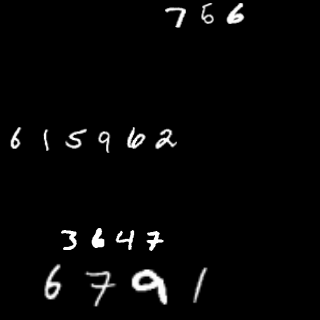 756
615962
3647
6791